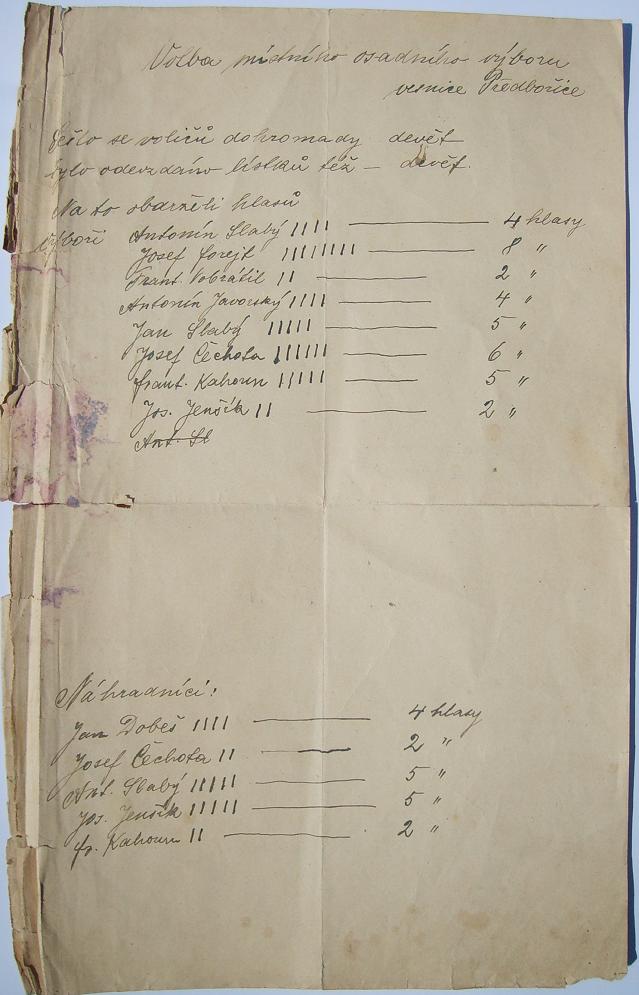 Volba místního osadního výboru
vesnice Předbořice
Sešlo se voličů dohromady devět
bylo odevzdáno lístků též — devět.
Na to obarželi hlasů
výboři Antonín Slabý IIII — 4 hlasy
Josef Forejt IIIIIIII — 8 "
Frant. Vobrátil II — 2 "
Antonín Javorský IIII — 4 "
Jan Slabý IIIII — 5 "
Josef Čěchota IIIIII — 6 "
Frant. Kahoun IIIII — 5 "
Jos. Jenšík II — 2 "
Ant. Sl
Náhradníci:
Jan Dobeš IIII — 4 hlasy
Josef Čěchota II — 2 "
Ant. Slabý IIIII — 5 "
Jos. Jenšík IIIII — 5 "
Fr. Kahoun II — 2 "